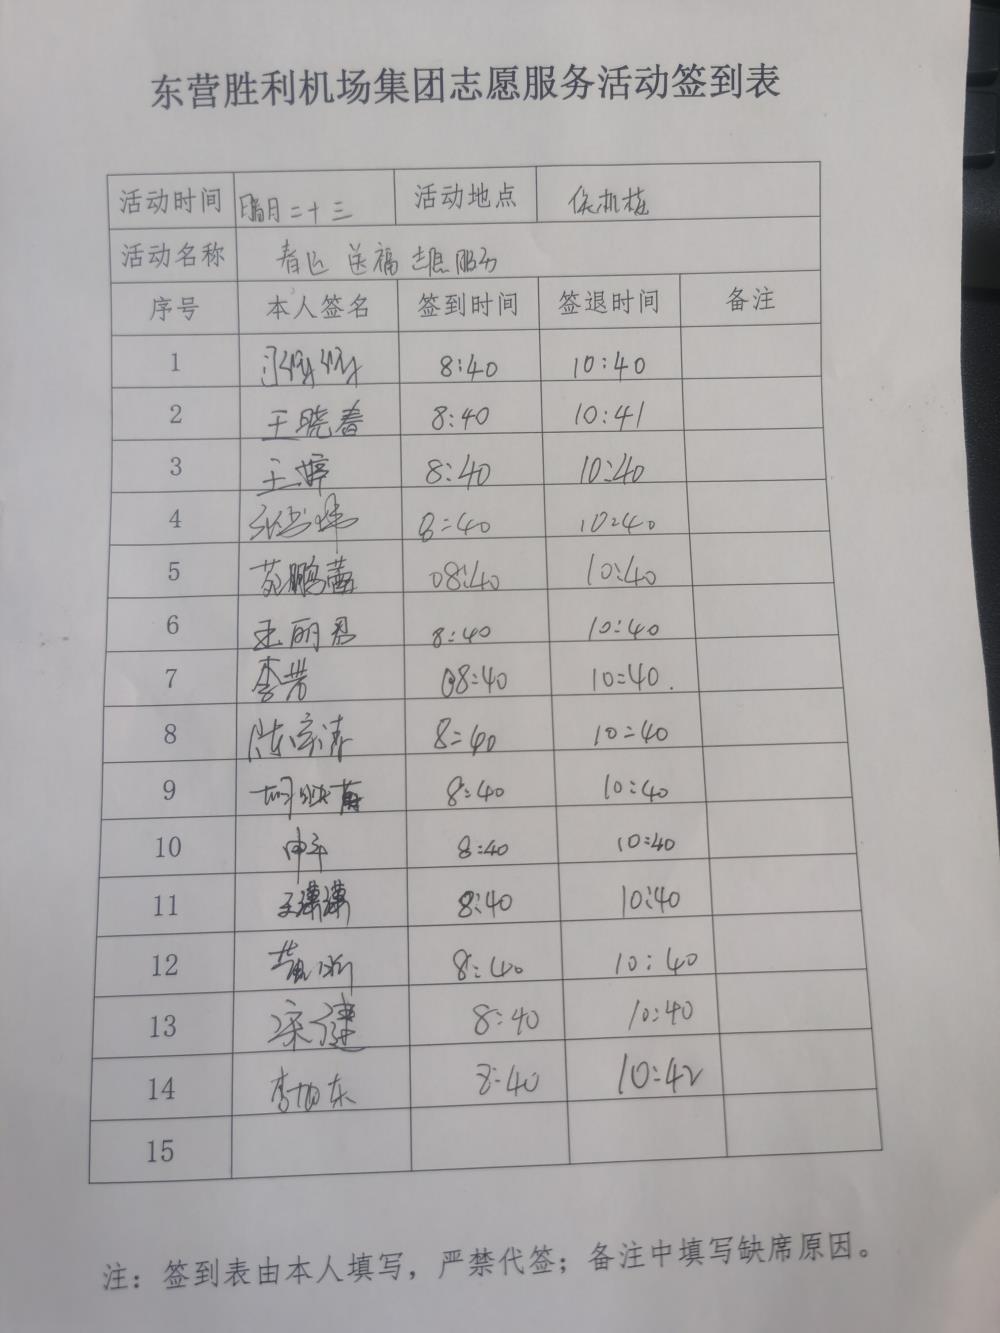 东营胜利机场集团志愿服务活动签到表
活动时间 腊月二十三 活动地点 候机楼
活动名称 春运送福志愿服务
序号 本人签名 签到时间 签退时间 备注
1 8:40 10:40
2 王晓春 8:40 10:41
3 王婷 8:40 10:40
4 8:40 10:40
5 苑鹏蕾 08:40 10:40
6 王丽君 8:40 10:40
7 李芳 08:40 10:40.
8 陈宗涛 8:40 10:40
9 8:40 10:40
10 申平 8:40 10:40
11 王潇潇 8:40 10:40
12 8:40 10:40
13 宋健 8:40 10:40
14 李旭东 8:40 10:42
15
注：签到表由本人填写，严禁代签；备注中填写缺席原因。